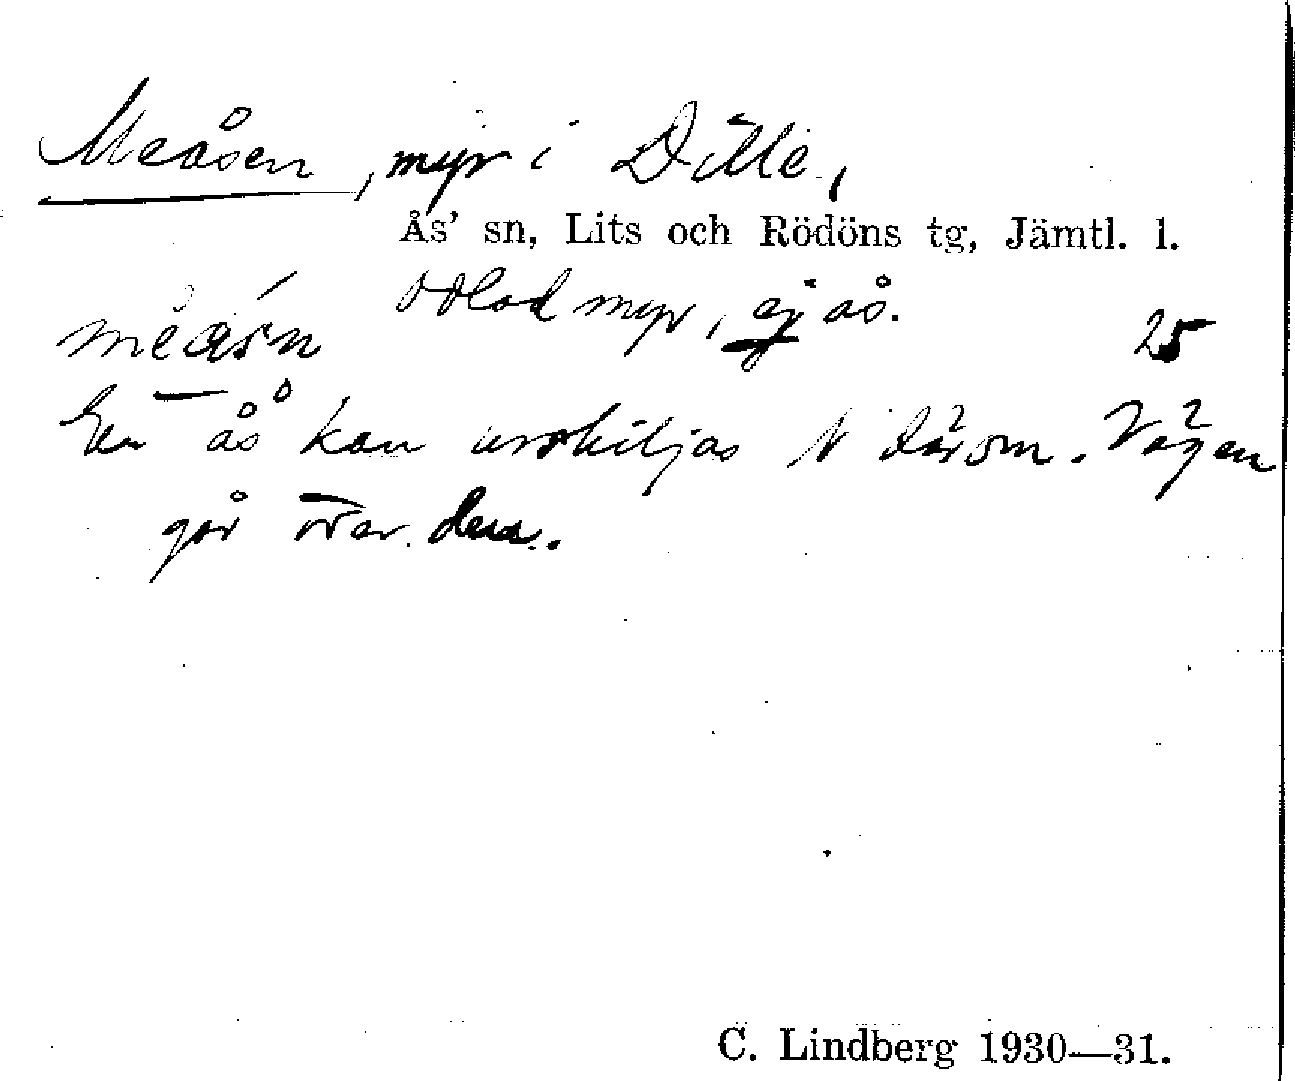 Meåsen, myr i Dille,
Ås' sn, Lits och Rödöns tg, Jämtl. l.
Odlad myr, ej ås.
25
En ås kan urskiljas N därom. Vägen
går över den.
C. Lindberg 1930—31.